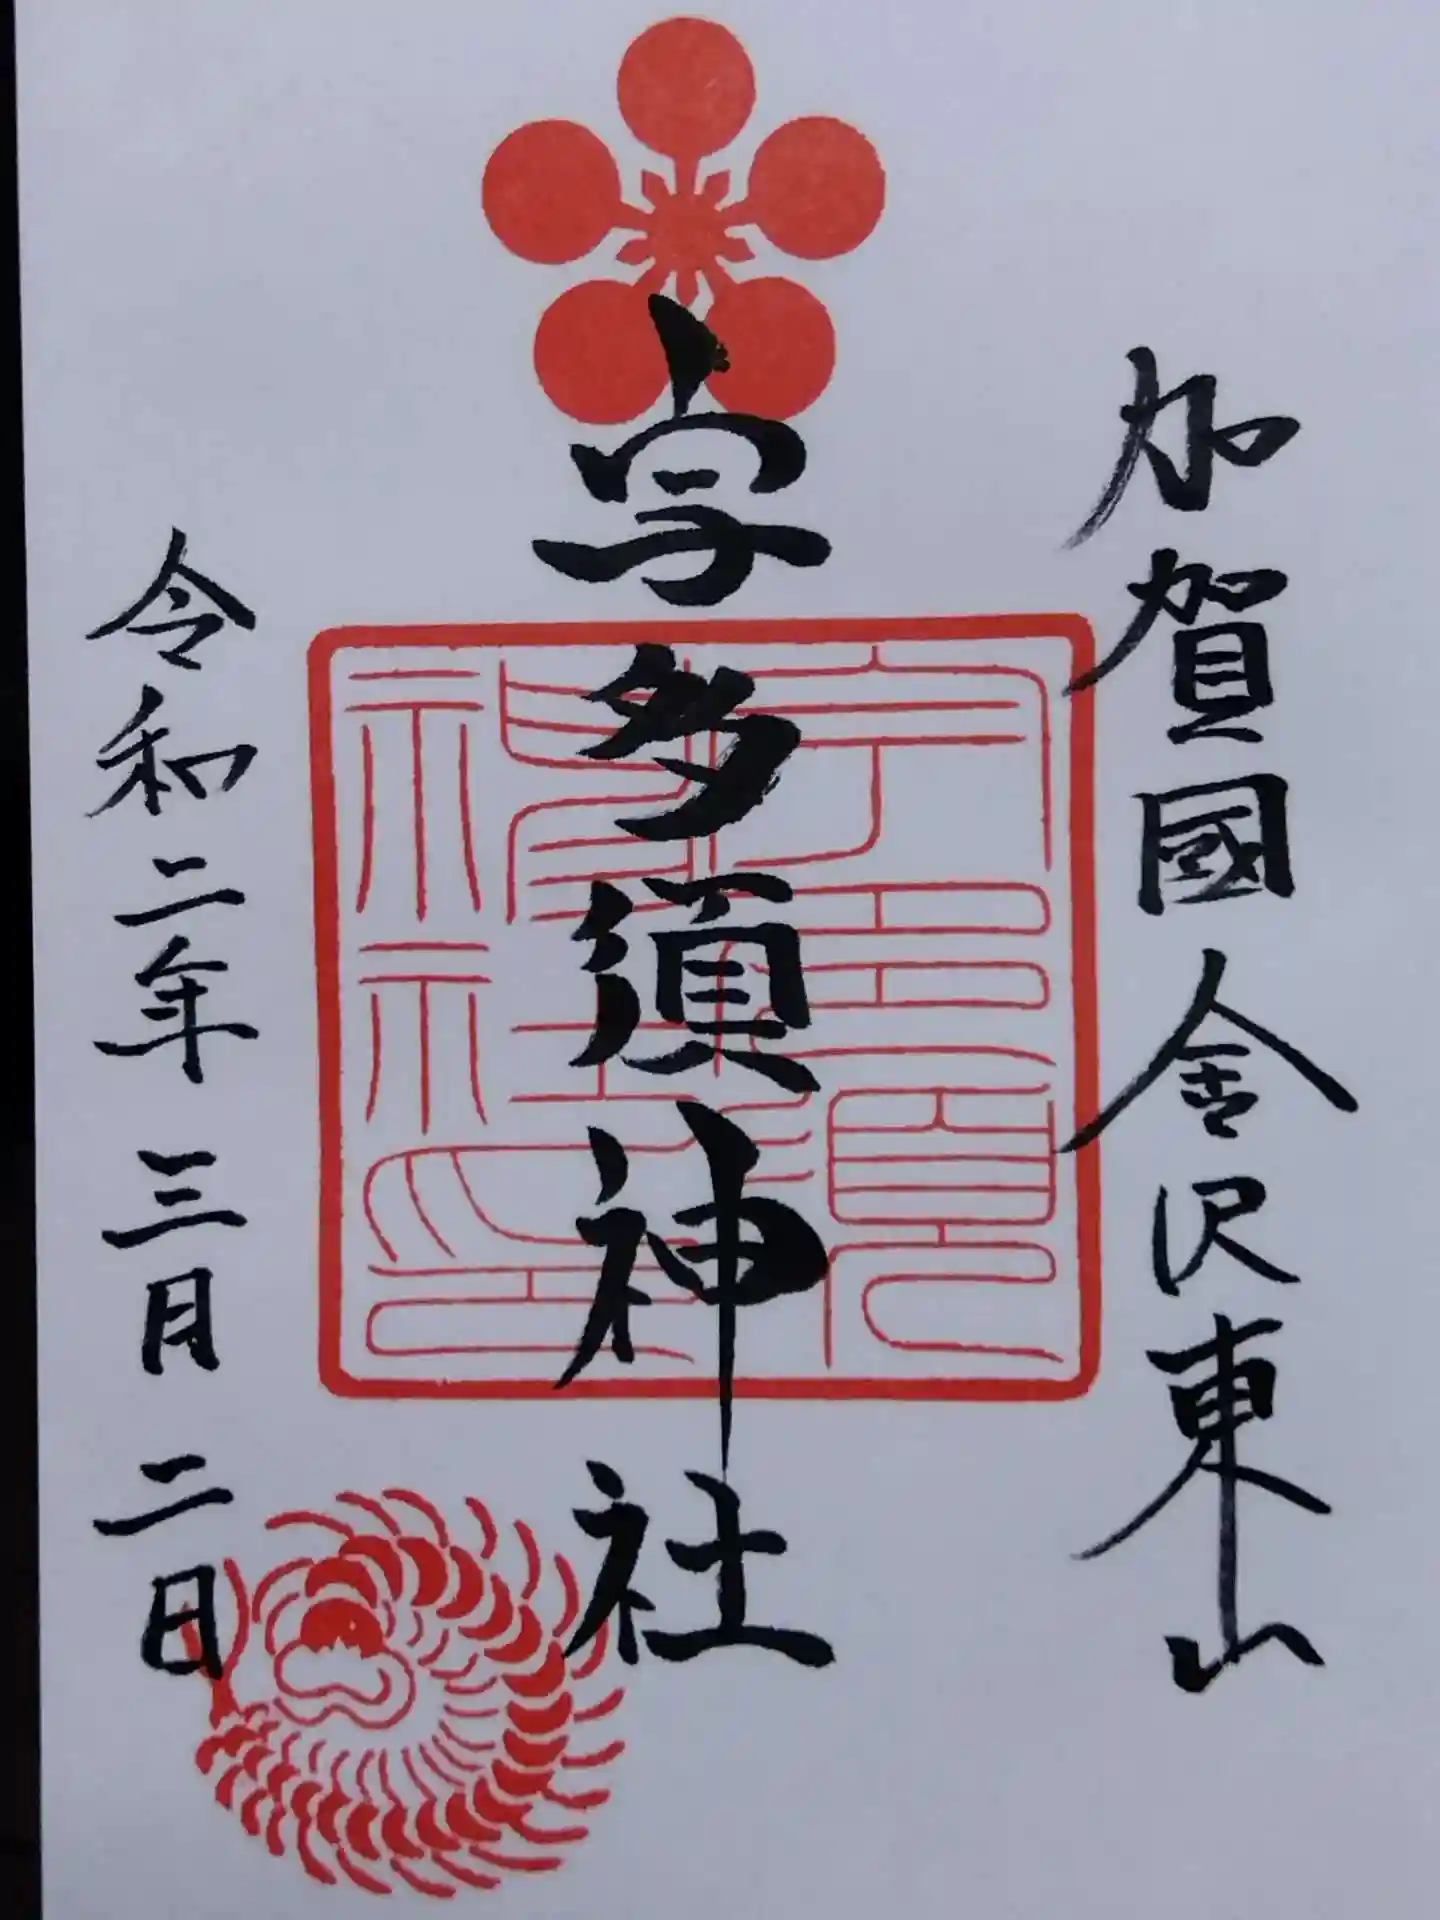 加賀國金沢東山
宇多須神社
令和二年三月二日
宇多須神社印